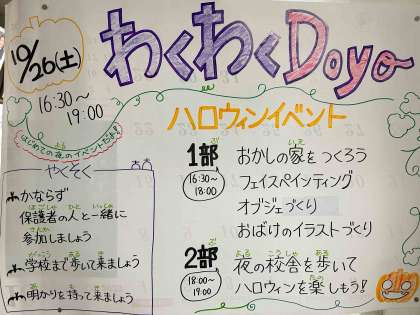 10/26(土)
16:30～
19:00
わくわくDoyo
はじめての夜のイベントだよ!
よる
ハロウィンイベント
やくそく
かならず
ほごしゃ ひと いっしょ
保護者の人と一緒に
さんか
参加しましょう
がっこう ある き
学校まで歩いて来ましょう
あ も き
明かりを持って来ましょう
1部
16:30～
18:00
いえ
おかしの家をつくろう
フェイスペインティング
オブジェづくり
おばけのイラストづくり
2部
18:00～
19:00
よる こうしゃ ある
夜の校舎を歩いて
たの
ハロウィンを楽しもう!